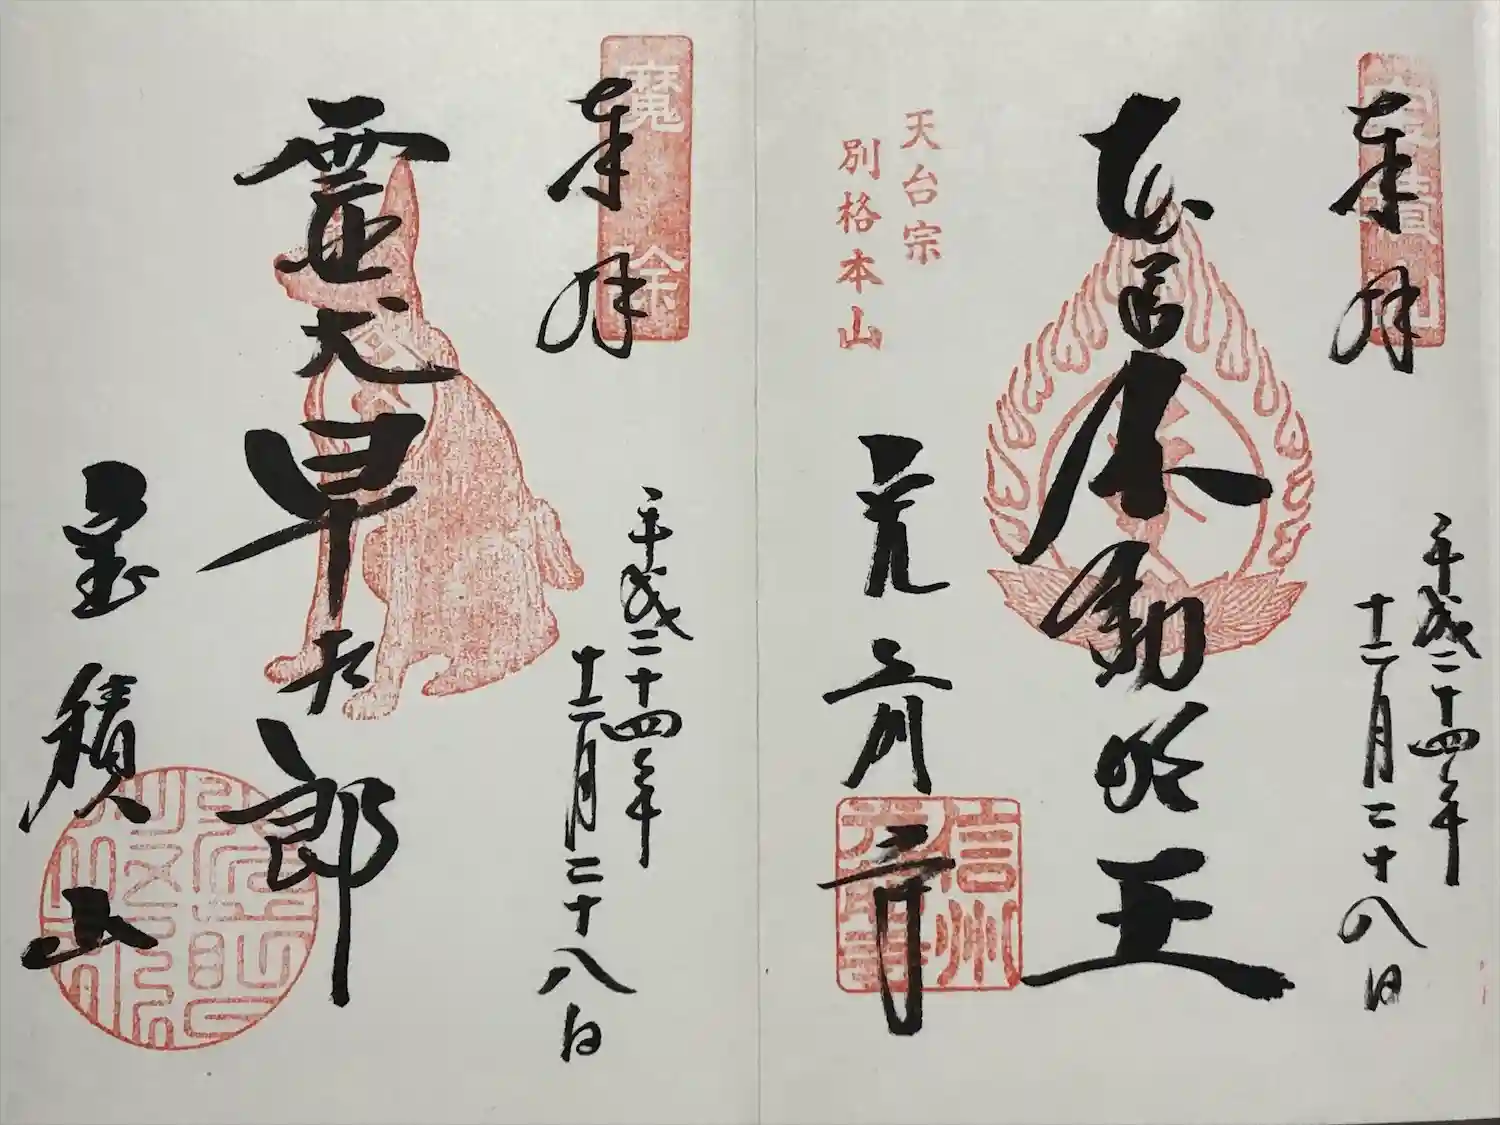 宝積山
奉拝
平成二十四年
十二月二十八日
本尊不動明王
天台宗
別格本山
光前寺
信州
光前寺
魔除
奉拝
平成二十四年
十二月二十八日
霊犬早太郎
宝積山